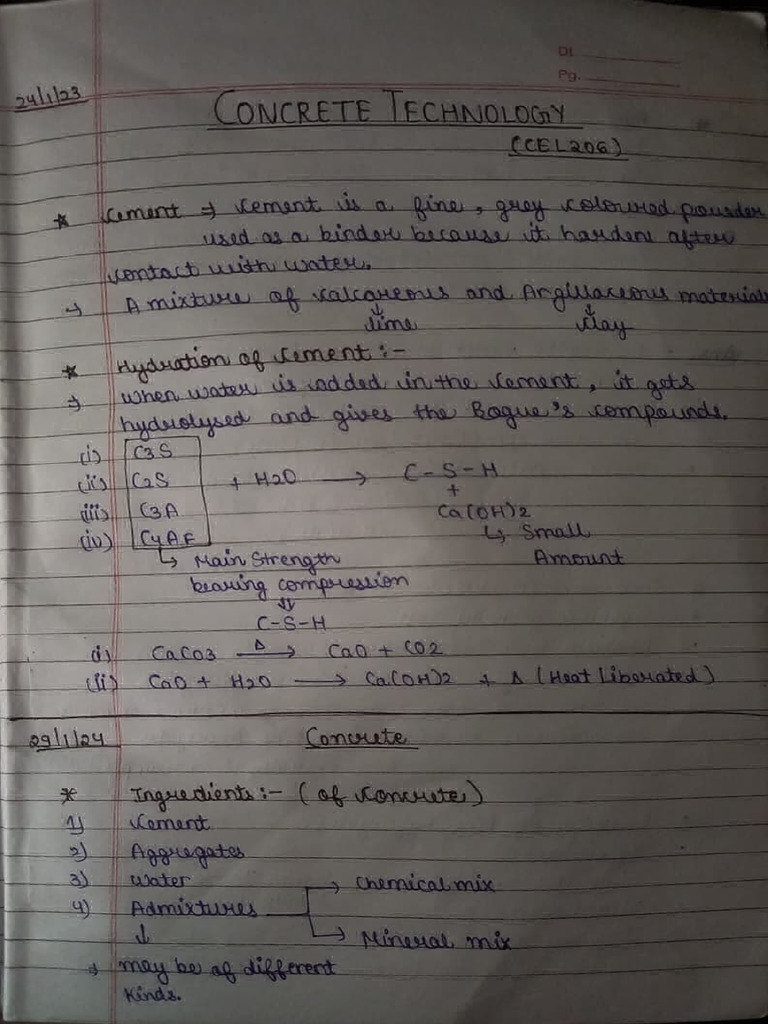 Dt.
Pg.
24/1/23
CONCRETE TECHNOLOGY
(CEL206)
* Cement → Cement is a fine, grey coloured powder
used as a binder because it hardens after
contact with water.
→ A mixture of calcareous and Argillaceous materials
↓ lime ↓ clay
* Hydration of cement :-
→ When water is added in the cement, it gets
hydrolysed and gives the Bogue's compounds.
(i) C3S
(ii) C2S + H2O → C-S-H
+
(iii) C3A Ca(OH)2
(iv) C4AF ↳ Small
↳ Main Strength Amount
bearing compression
⇓
C-S-H
(i) CaCO3 —Δ→ CaO + CO2
(ii) CaO + H2O → Ca(OH)2 + Δ (Heat Liberated)
29/1/24 Concrete
* Ingredients :- (of concrete)
1) Cement
2) Aggregates
3) Water → Chemical mix
4) Admixtures
↓ → Mineral mix
→ may be of different
kinds.